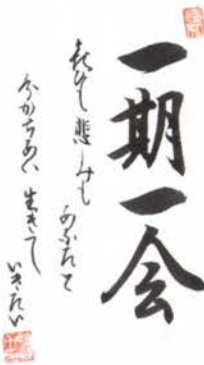 一期一会
歓びも悲しみも あなたと
分かちあい 生きて いきたい